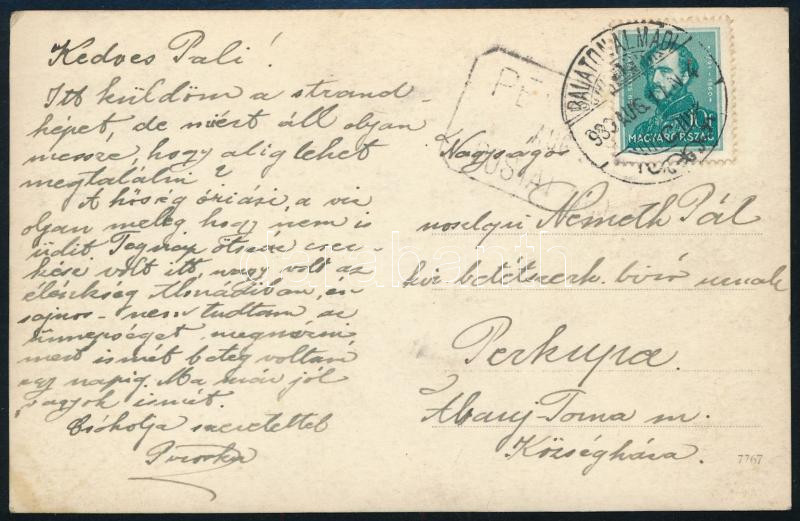 Kedves Pali!
Itt küldöm a strand-
képet, de miért áll olyan
messze, hogy alig lehet
megtalálni?
A hőség óriási, a víz
olyan meleg hogy nem is
üdit. Tegnap ötszáz cser-
kész volt itt, nagy volt az
élénkség Almádiban, én
sajnos - nem tudtam az
ünnepséget megnézni
mert ismét beteg voltam
egy napig. Ma már jól
vagyok ismét.
Csókolja szeretettel
Piroska
BALATONALMÁDI
933 AUG.
10f
MAGYARORSZÁG
PE
POSTAI
Nagyságos
Németh Pál
kir. betétszerk. biró urnak
Perkupa.
Abauj-Torna m.
Községháza.
7767